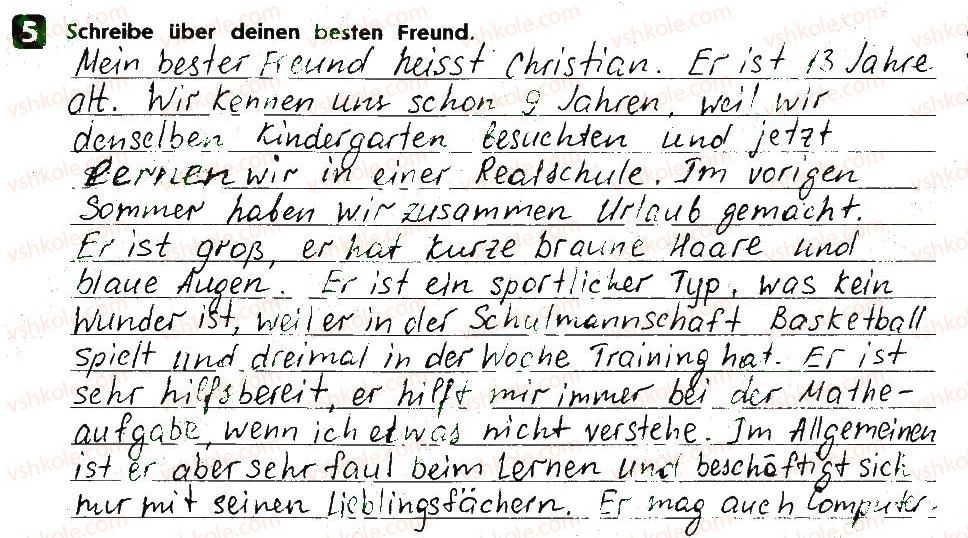 5 Schreibe über deinen besten Freund.
Mein bester Freund heisst Christian. Er ist 13 Jahre
alt. Wir kennen uns schon 9 Jahren, weil wir
denselben Kindergarten besuchten und jetzt
lernen wir in einer Realschule. Im vorigen
Sommer haben wir zusammen Urlaub gemacht.
Er ist groß, er hat kurze braune Haare und
blaue Augen. Er ist ein sportlicher Typ, was kein
Wunder ist, weil er in der Schulmannschaft Basketball
spielt und dreimal in der Woche Training hat. Er ist
sehr hilfsbereit, er hilft mir immer bei der Mathe-
aufgabe, wenn ich etwas nicht verstehe. Im Allgemeinen
ist er aber sehr faul beim Lernen und beschäftigt sich
nur mit seinen Lieblingsfächern. Er mag auch Computer-